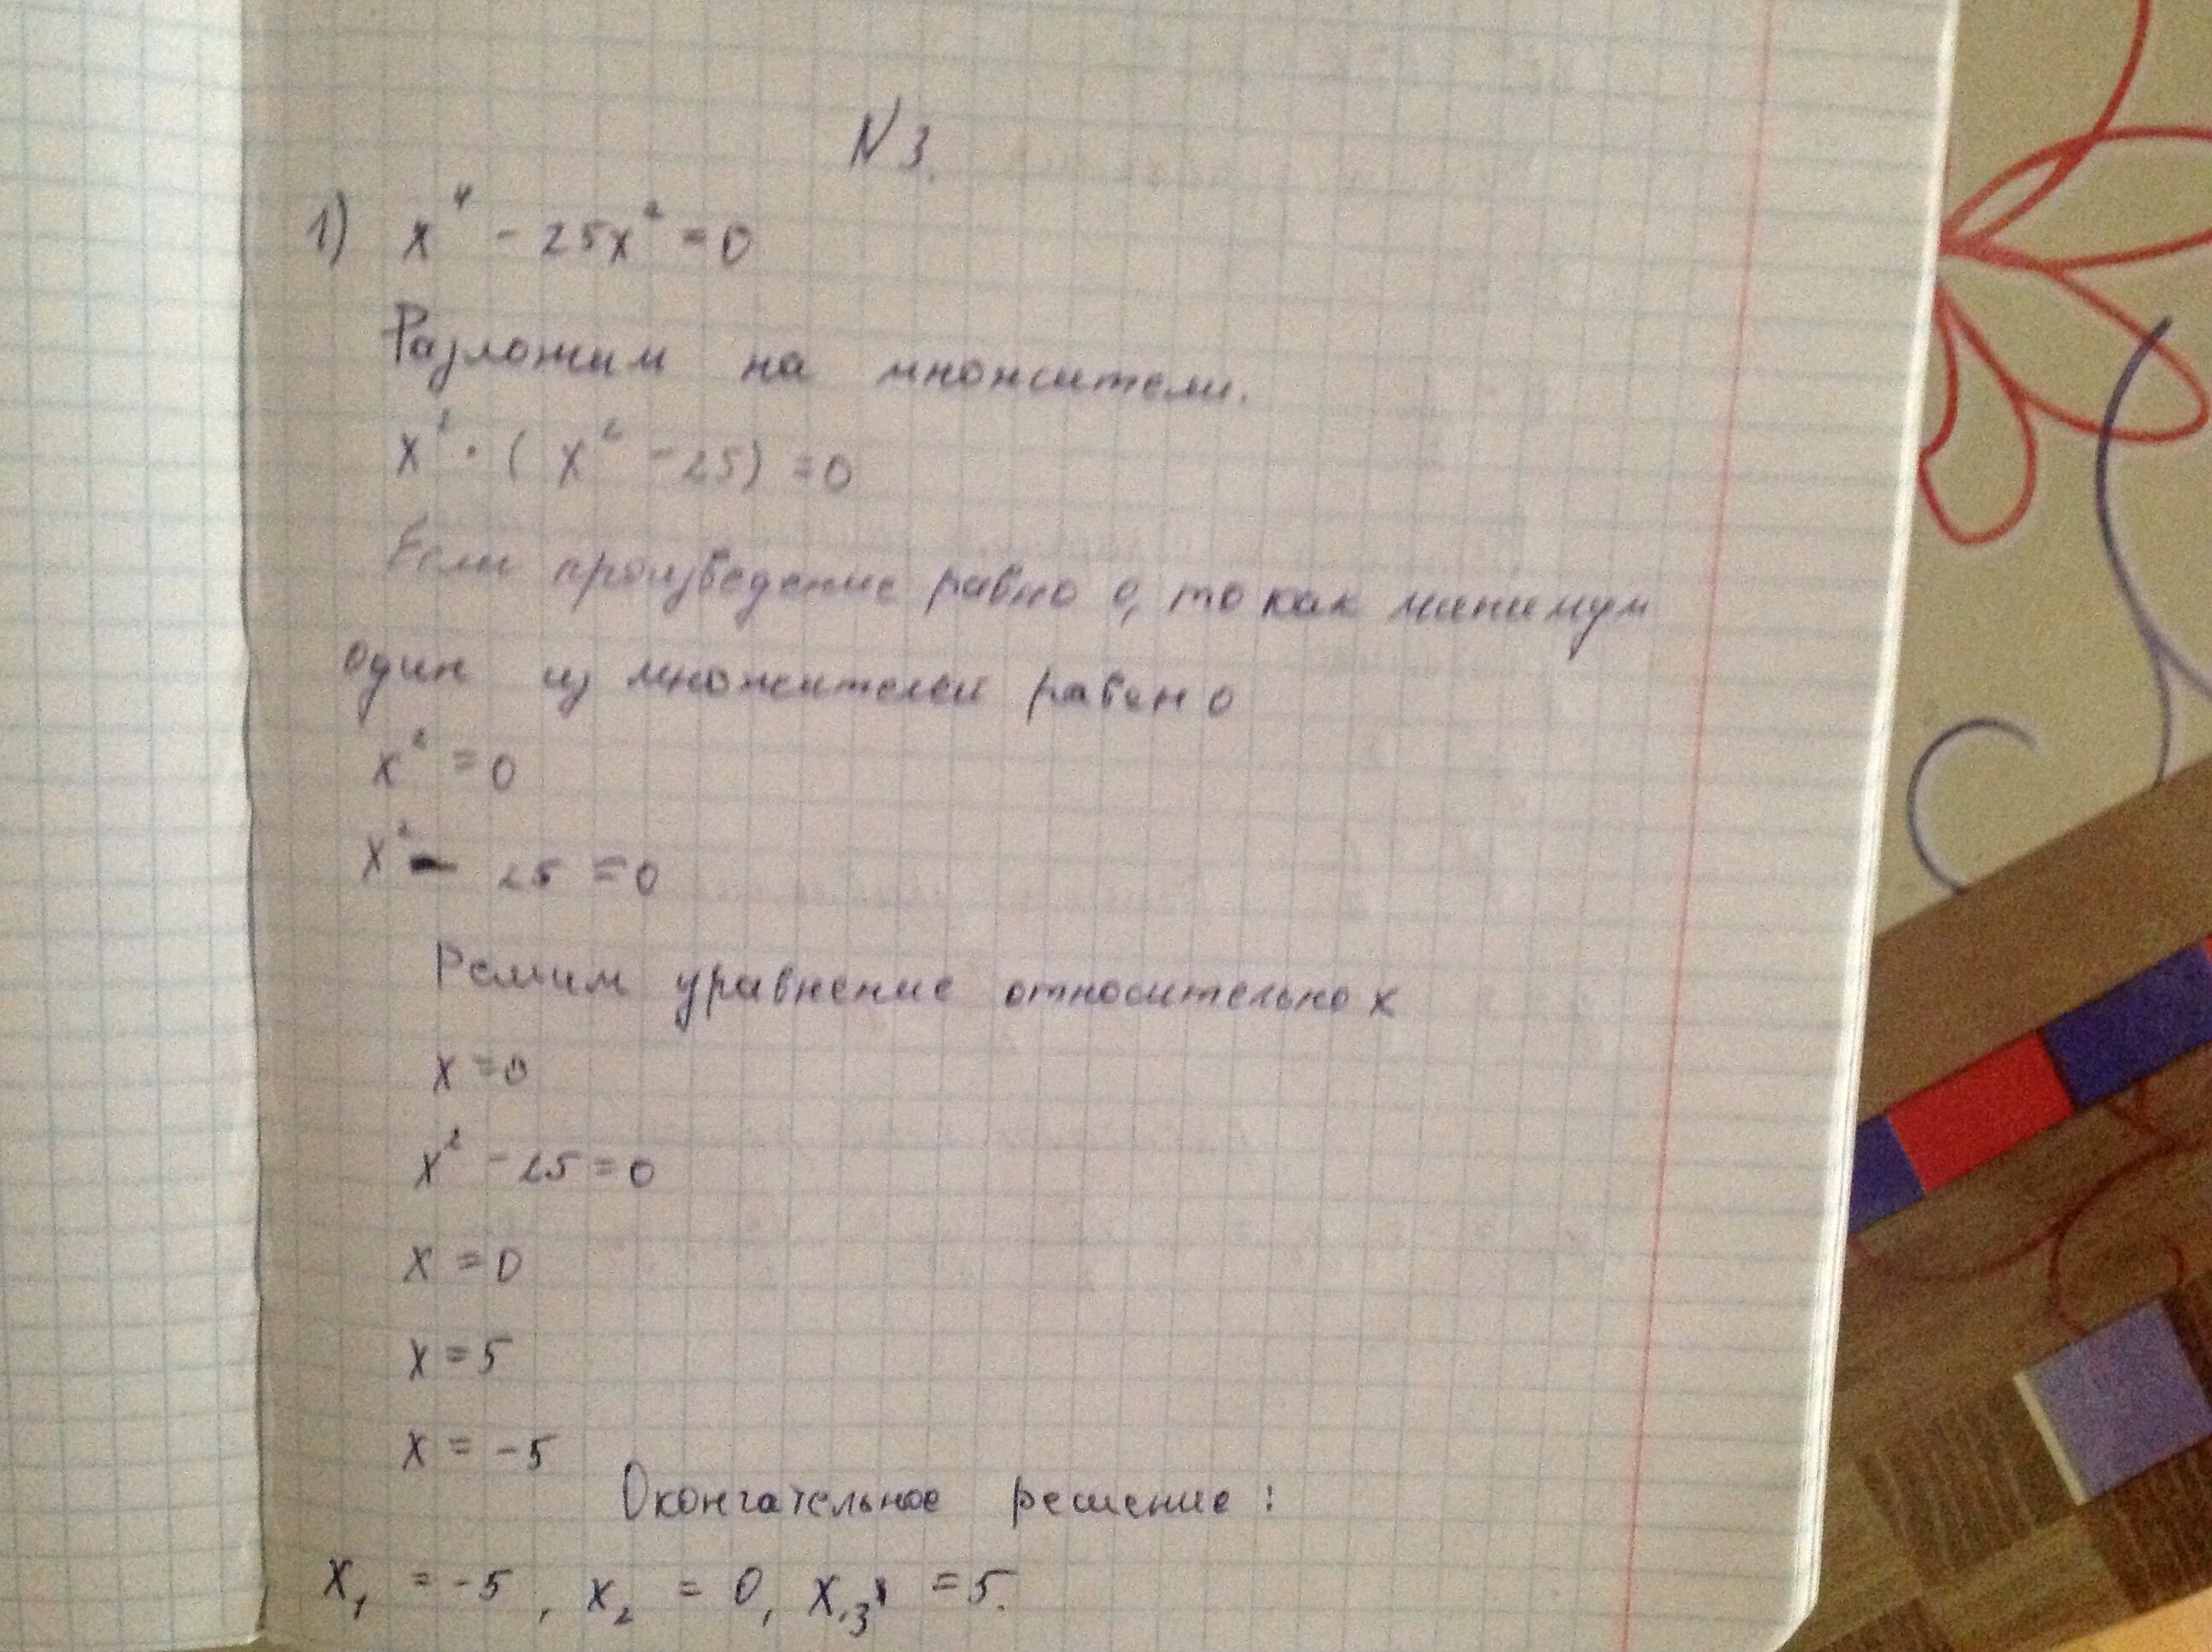 N3.
1) x⁴ - 25x² = 0
Разложим на множители.
x² · (x² - 25) = 0
Если произведение равно 0, то как минимум
один из множителей равен 0
x² = 0
x² - 25 = 0
Решим уравнение относительно x
x = 0
x² - 25 = 0
x = 0
x = 5
x = -5
Окончательное решение:
x₁ = -5, x₂ = 0, x₃ = 5.